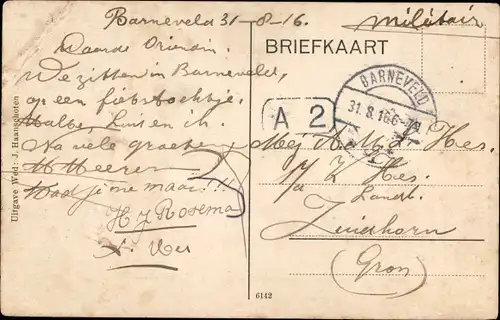 Barneveld 31-8-16.
Waarde Vriendin.
We zitten in Barneveld,
op een fietstochtje.
Malbe, Luis en ik.
Na vele groeten
H Meeren
Had je me maar!!!
H J Rosema
L. Hes
militair
BRIEFKAART
BARNEVELD
31.8.16
A 2
Mej A. M. Z. Hes.
p/a Z Hes.
Landb.
Zuidhorn
(Gron)
Uitgave Wed: J. Haanschoten
6142